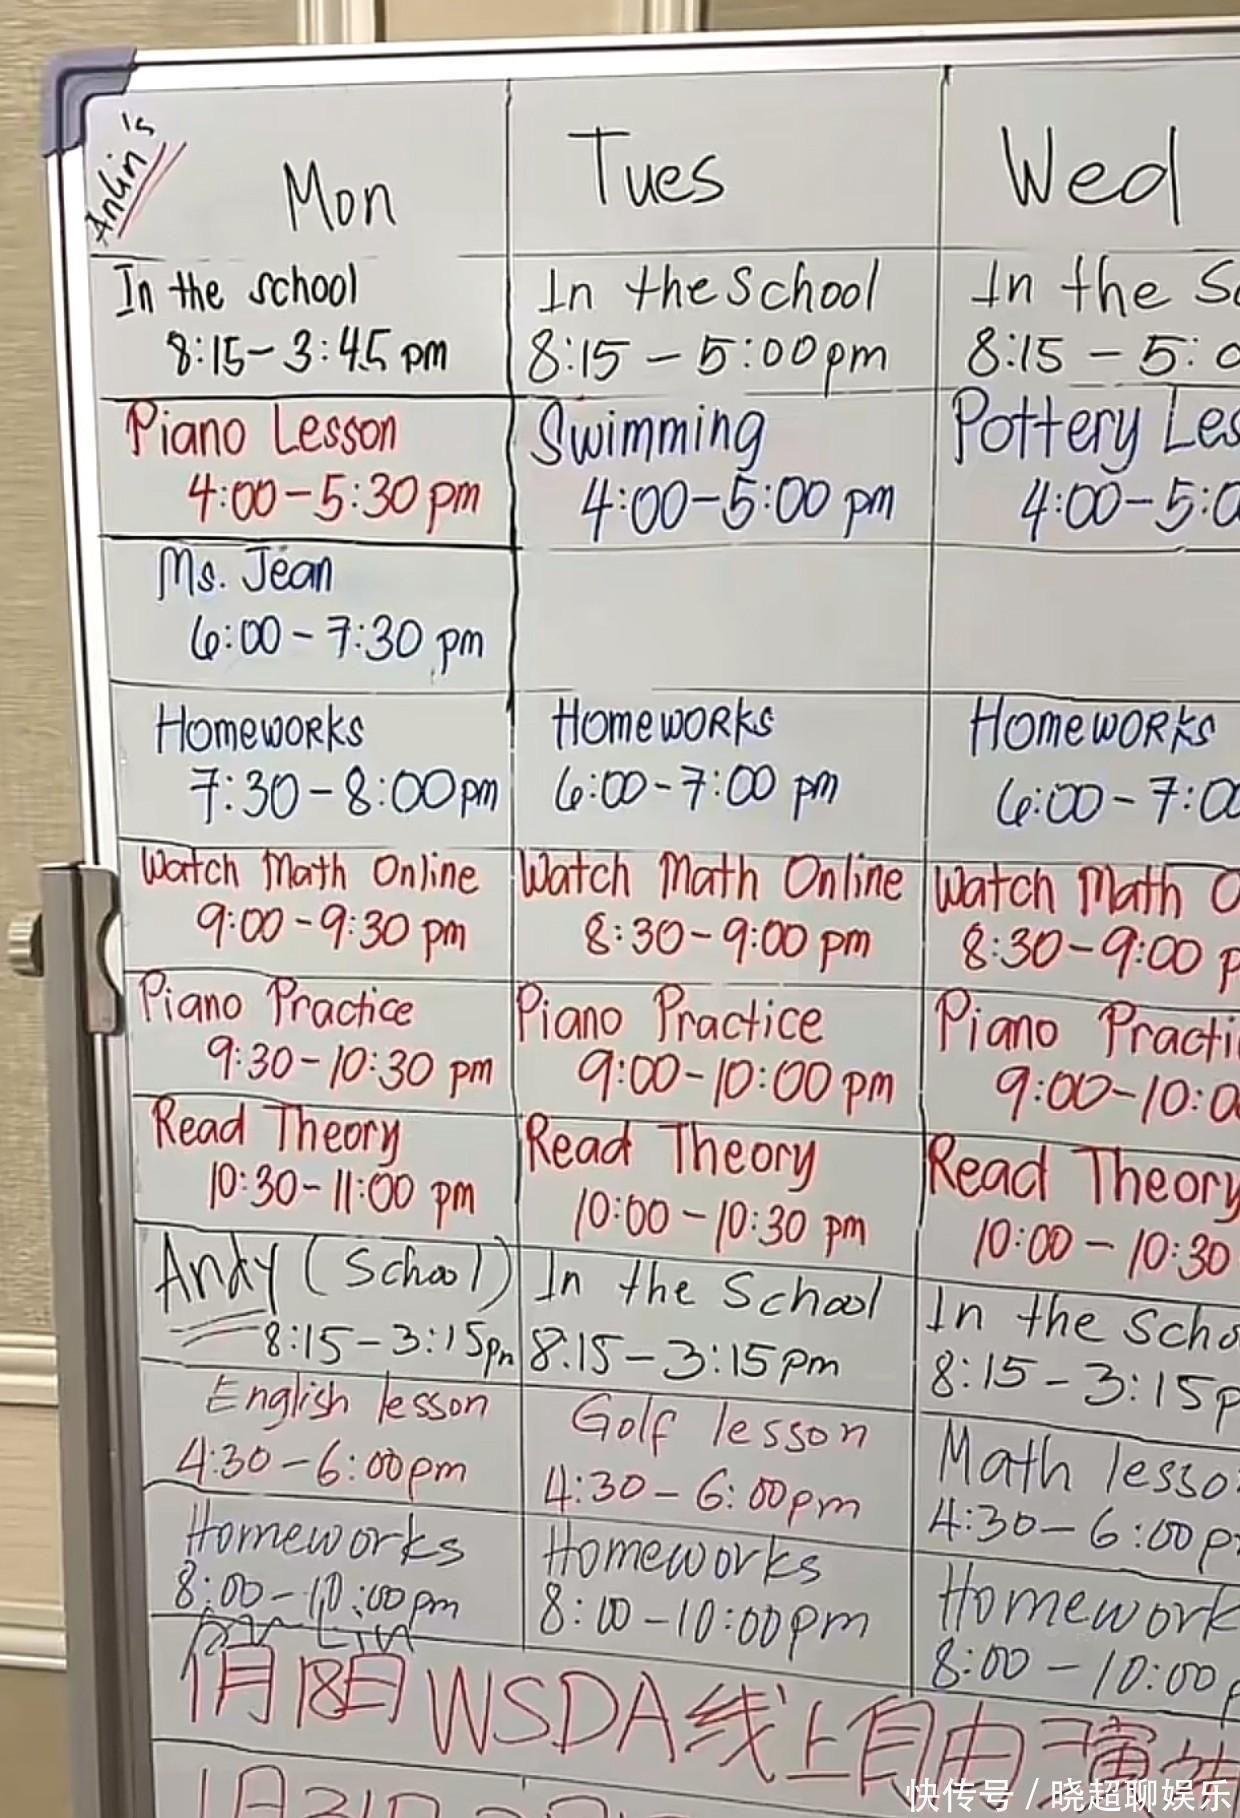 Anlin's
Mon Tues Wed
In the school In the School In the
8:15-3:45 pm 8:15-5:00pm 8:15-5:
Piano Lesson Swimming Pottery Les
4:00-5:30 pm 4:00-5:00 pm 4:00-5:0
Ms. Jean
6:00-7:30 pm
Homeworks Homeworks Homeworks
7:30-8:00pm 6:00-7:00 pm 6:00-7:00
Watch Math Online Watch Math Online Watch Math O
9:00-9:30 pm 8:30-9:00 pm 8:30-9:00 p
Piano Practice Piano Practice Piano Practi
9:30-10:30 pm 9:00-10:00 pm 9:00-10:0
Read Theory Read Theory Read Theory
10:30-11:00 pm 10:00-10:30 pm 10:00-10:30
Andy (School) In the School In the Scho
8:15-3:15pm 8:15-3:15pm 8:15-3:15p
English lesson Golf lesson Math lesso
4:30-6:00pm 4:30-6:00pm 4:30-6:00p
Homeworks Homeworks Homework
8:00-10:00pm 8:00-10:00pm 8:00-10:00p
1月18日WSDA线上自由演
快传号/晓超聊娱乐